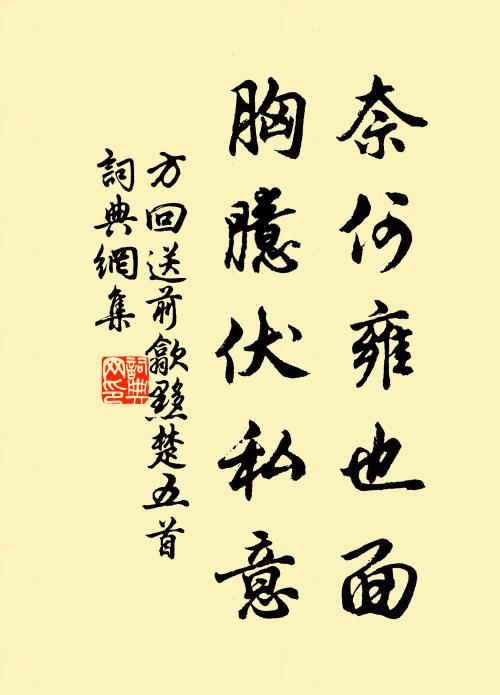 奈何雍也面
胸臆伏私意
方回送前歙黟楚五首
詞典網集
詞典網印